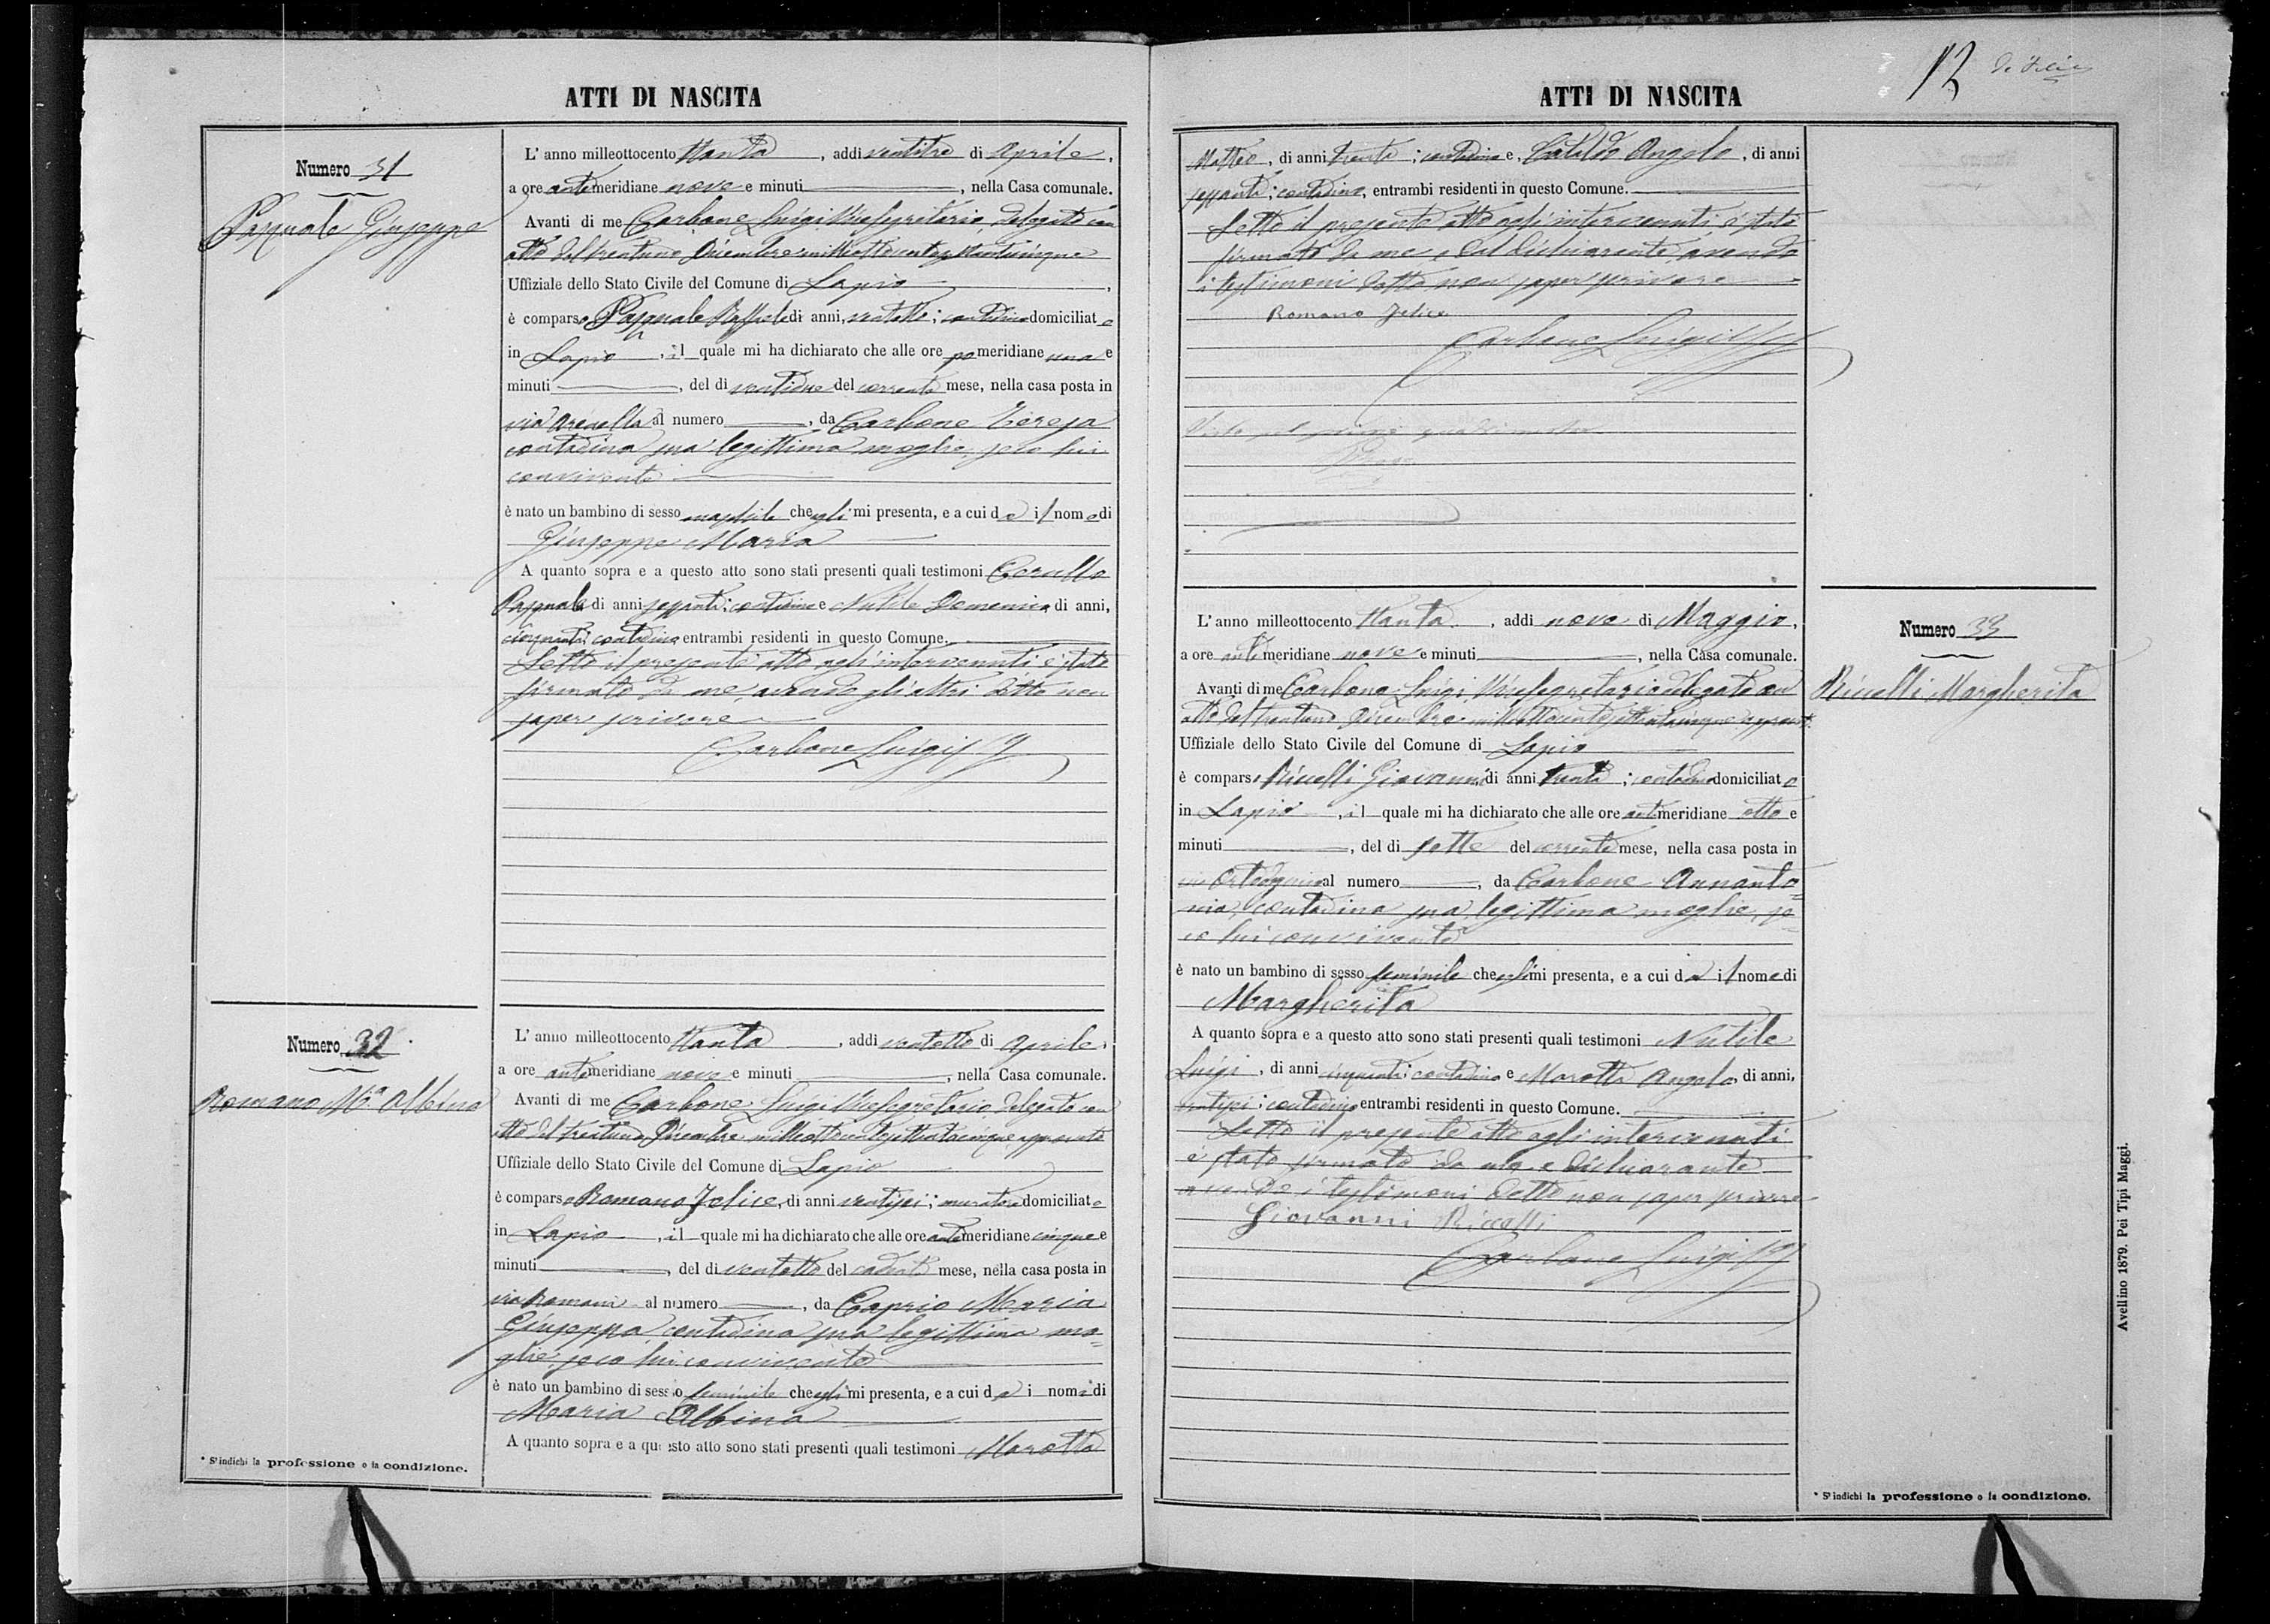 ATTI DI NASCITA
Numero 31
Pasquale Giuseppe
L' anno milleottocento ttanta, addi ventitre di Aprile,
a ore antemeridiane nove e minuti, nella Casa comunale.
Avanti di me Carbone Luigi Vicesegretario delegato con
atto del trentuno Dicembre milleottocentosettantacinque
Uffiziale dello Stato Civile del Comune di Lapio,
è comparso Pasquale Raffaele di anni ventotto; contadino domiciliato
in Lapio, il quale mi ha dichiarato che alle ore pomeridiane una e
minuti, del di ventidue del corrente mese, nella casa posta in
via Arenella al numero, da Carbone Teresa
contadina sua legittima moglie, seco lui
convivente
è nato un bambino di sesso maschile che egli mi presenta, e a cui dà il nome di
Giuseppe Maria
A quanto sopra e a questo atto sono stati presenti quali testimoni Cerullo
Pasquale di anni sessanta; contadino e Nutile Domenico di anni,
cinquanta; contadino entrambi residenti in questo Comune.
Letto il presente atto agli intervenuti è stato
firmato da me, avendo gli altri detto non
saper scrivere
Carbone Luigi
Numero 32
Romano Mª Albina
L' anno milleottocento ttanta, addi ventotto di Aprile,
a ore antemeridiane nove e minuti, nella Casa comunale.
Avanti di me Carbone Luigi Vicesegretario delegato con
atto del trentuno Dicembre milleottocentosettantacinque approvato
Uffiziale dello Stato Civile del Comune di Lapio
è comparso Romano Felice, di anni ventisei; muratore domiciliato
in Lapio, il quale mi ha dichiarato che alle ore antemeridiane cinque e
minuti, del di ventotto del cadente mese, nella casa posta in
via Romani al numero, da Caprio Maria
Giuseppa contadina sua legittima mo=
glie, seco lui convivente
è nato un bambino di sesso feminile che egli mi presenta, e a cui dà i nomi di
Maria Albina
A quanto sopra e a questo atto sono stati presenti quali testimoni Marotta
* S'indichi la professione o la condizione.
ATTI DI NASCITA
Matteo, di anni trenta; contadino e, Cataldo Angelo, di anni
sessanta; contadino, entrambi residenti in questo Comune.
Letto il presente atto agli intervenuti, è stato
firmato da me, e dal dichiarante, avendo
i testimoni detto non saper scrivere
Romano Felice
Carbone Luigi
L' anno milleottocento ttanta, addi nove di Maggio,
a ore antemeridiane nove e minuti, nella Casa comunale.
Avanti di me Carbone Luigi Vicesegretario delegato con
atto del trentuno Dicembre milleottocentosettantacinque approvato
Uffiziale dello Stato Civile del Comune di Lapio
è comparso Riccelli Giovanni di anni trenta; contadino domiciliato
in Lapio, il quale mi ha dichiarato che alle ore antemeridiane otto e
minuti, del di sette del corrente mese, nella casa posta in
via al numero, da Carbone Annanto=
nia, contadina sua legittima moglie, se=
co lui convivente
è nato un bambino di sesso feminile che egli mi presenta, e a cui dà il nome di
Margherita
A quanto sopra e a questo atto sono stati presenti quali testimoni Nutile
Luigi, di anni cinquanta; contadino e Marotta Angelo, di anni,
ventisei; contadino entrambi residenti in questo Comune.
Letto il presente atto agli intervenuti
è stato firmato da me e dichiarante
avendo i testimoni detto non saper scrivere
Giovanni Riccelli
Carbone Luigi
Numero 33
Riccelli Margherita
* S'indichi la professione o la condizione.
Avellino 1879. Pei Tipi Maggi.